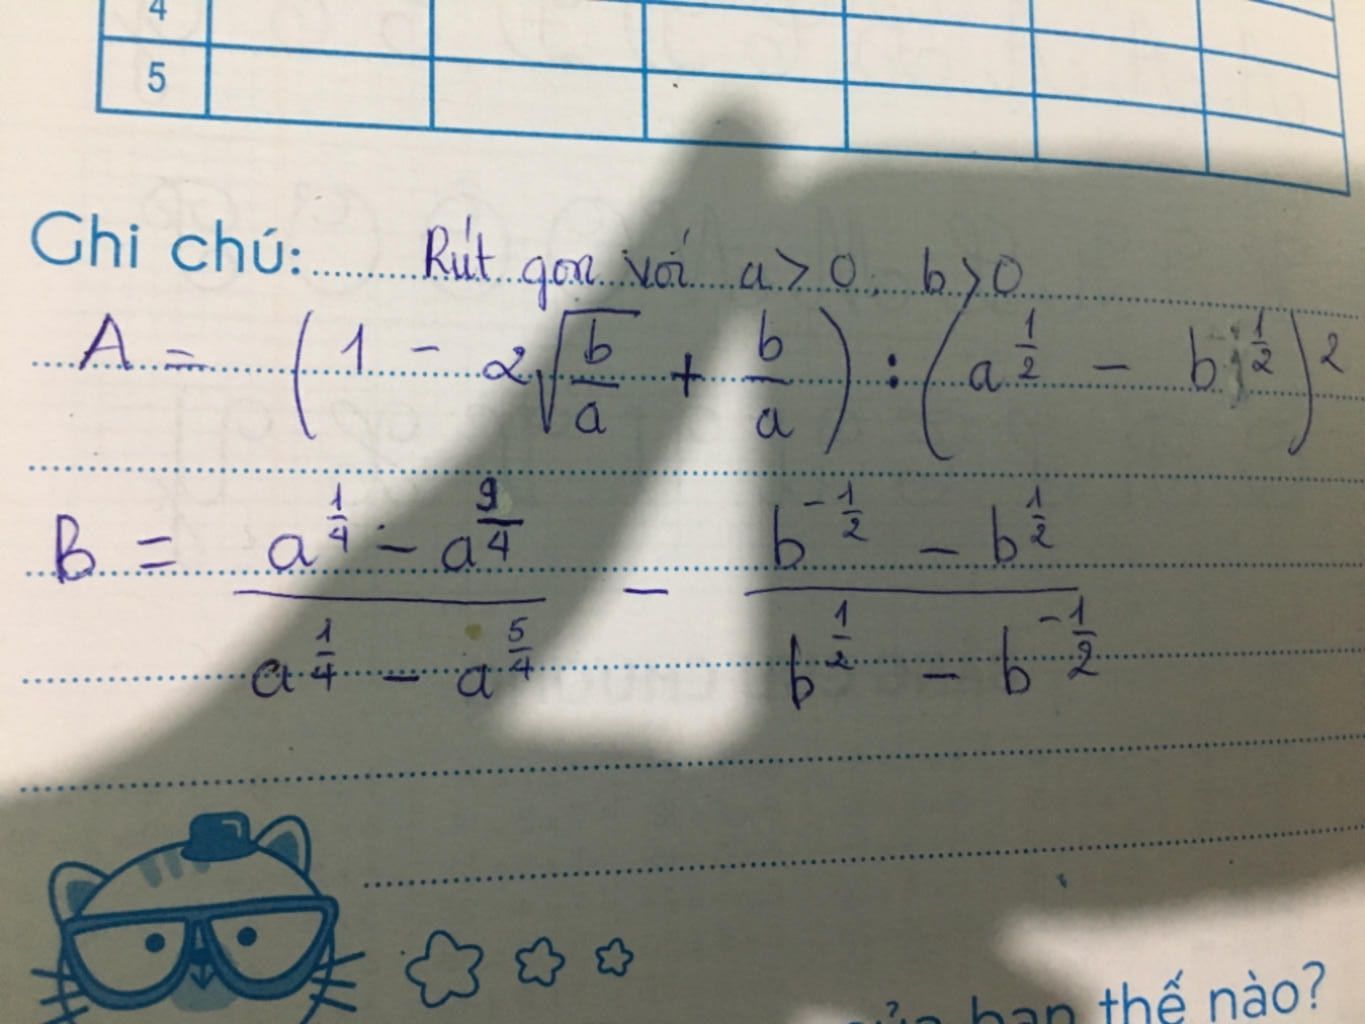 4
5
Ghi chú: Rút gọn với a > 0, b > 0
A = (1 - 2√(b/a) + b/a) : (a^(1/2) - b^(1/2))^2
B = (a^(1/4) - a^(9/4))/(a^(1/4) - a^(5/4)) - (b^(-1/2) - b^(1/2))/(b^(1/2) - b^(-1/2))
bạn thế nào?